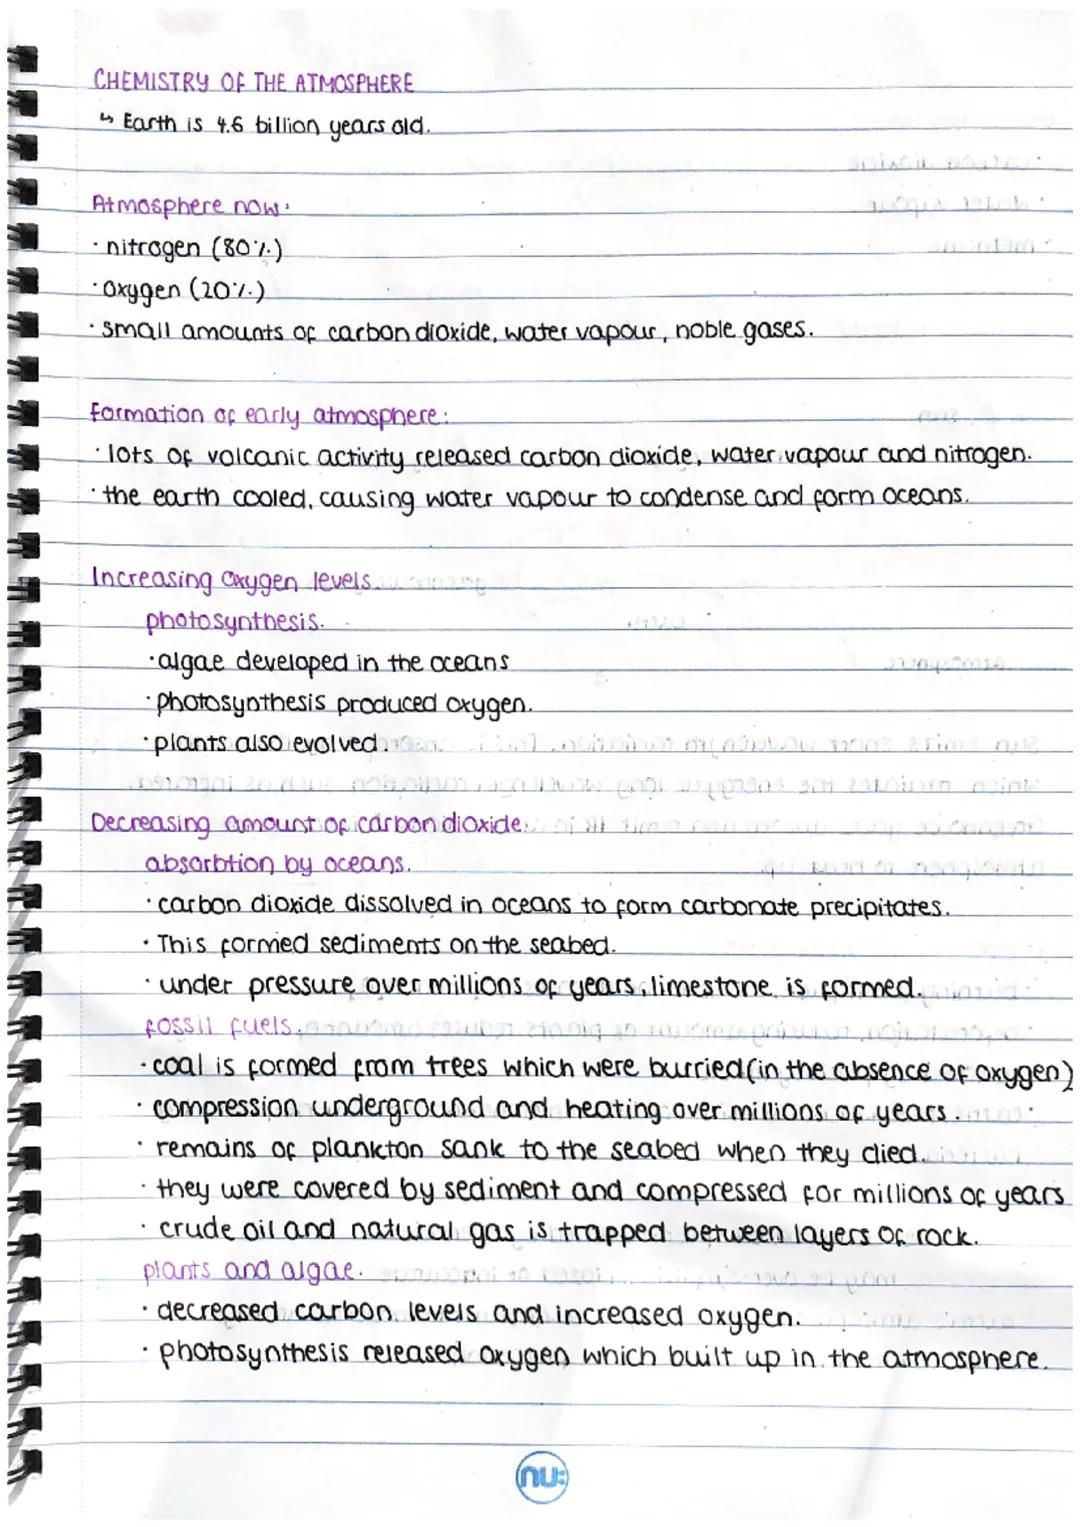 CHEMISTRY OF THE ATMOSPHERE
↳ Earth is 4.6 billion years old.
Atmosphere now:
· nitrogen (80%)
· oxygen (20%)
· small amounts of carbon dioxide, water vapour, noble gases.
Formation of early atmosphere:
· lots of volcanic activity released carbon dioxide, water vapour and nitrogen.
· the earth cooled, causing water vapour to condense and form oceans.
Increasing oxygen levels.
photosynthesis.
· algae developed in the oceans
· photosynthesis produced oxygen.
· plants also evolved.
Decreasing amount of carbon dioxide.
absorbtion by oceans.
· carbon dioxide dissolved in oceans to form carbonate precipitates.
· This formed sediments on the seabed.
· under pressure over millions of years, limestone is formed.
fossil fuels.
· coal is formed from trees which were burried (in the absence of oxygen)
· compression underground and heating over millions of years.
· remains of plankton sank to the seabed when they died.
· they were covered by sediment and compressed for millions of years
· crude oil and natural gas is trapped between layers of rock.
plants and algae.
· decreased carbon levels and increased oxygen.
· photosynthesis released oxygen which built up in the atmosphere.
nu: